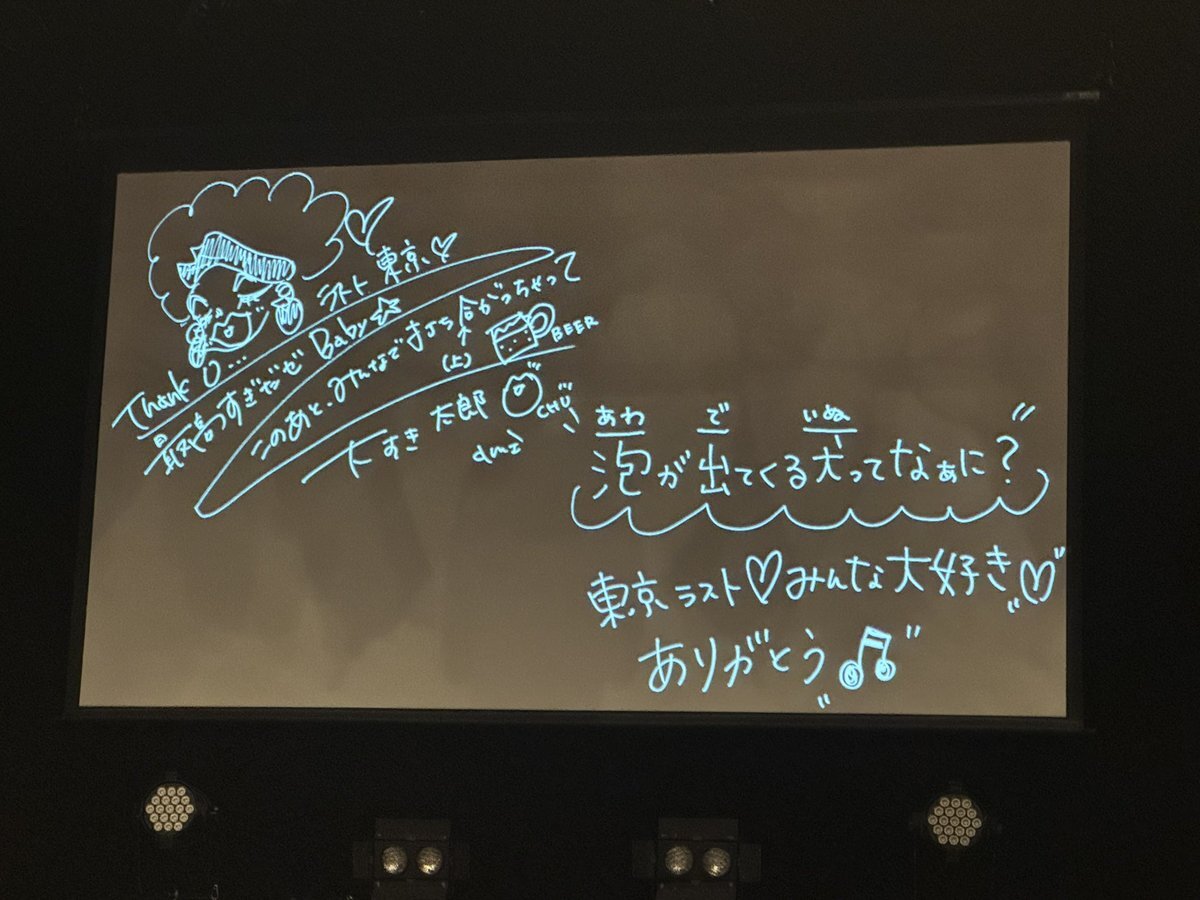 ラスト 東京♡
Thank U...
最高すぎだぜ Baby☆
このあと、みんなで打ち がっちゃって
(上)
BEER
大すき 太郎
CHU
あわ で いぬ
泡が出てくる犬ってなぁに?
東京ラスト♡みんな大好き♡
ありがとう♫